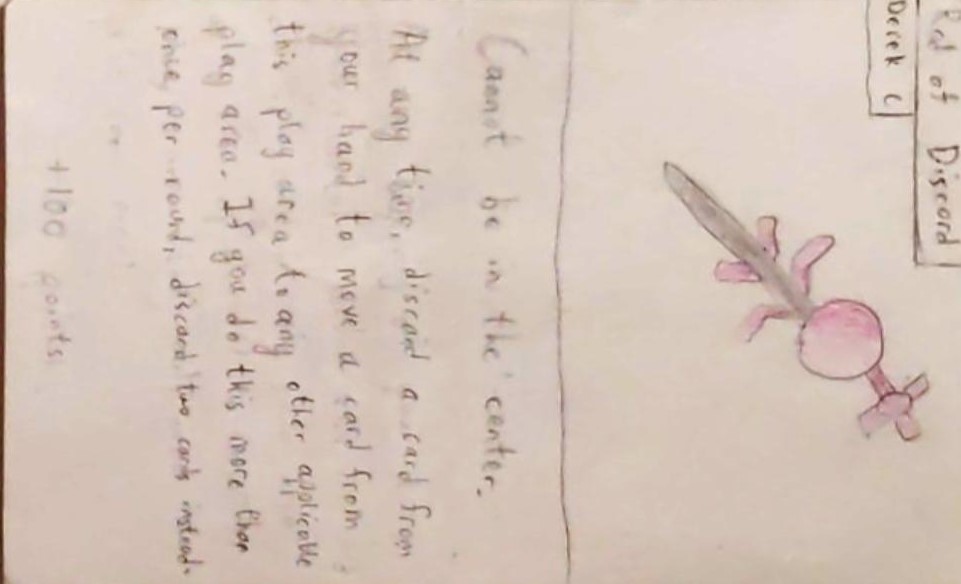 Rod of Discord
Derek C
Cannot be in the center.
At any time, discard a card from
your hand to move a card from
this play area to any other applicable
play area. If you do this more than
once per round, discard two cards instead.
+100 points